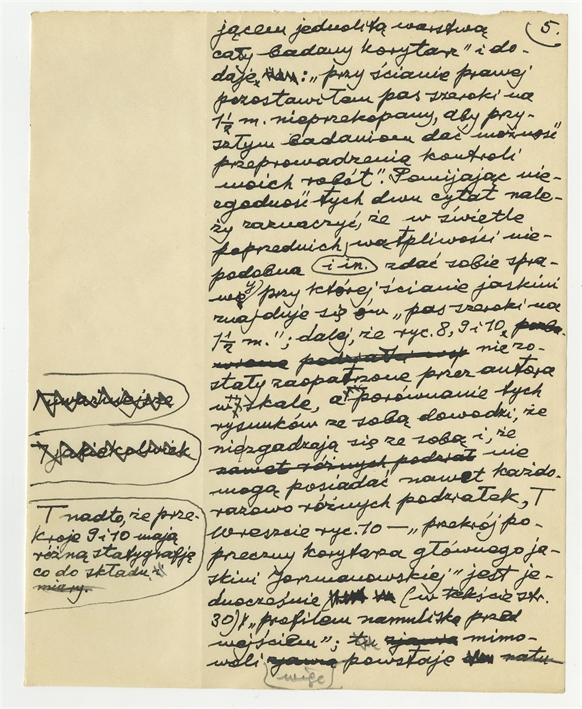 5.
jącem jednolitą warstwą
cały badany korytarz" i do-
daje: „przy ścianie prawej
pozostawiłem pas szeroki na
1½ m. nieprzekopany, aby przy-
szłym badaniom dać możność
przeprowadzenia kontroli
moich robót". Pomijając nie-
zgodność tych dwu cytat nale-
ży zaznaczyć, że w świetle
poprzednich wątpliwości nie-
podobna i in. zdać sobie spra-
wę, przy której ścianie jaskini
znajduje się ów „pas szeroki na
1½ m."; dalej, że ryc. 8, 9 i 10,
podziałki nie zo-
stały zaopatrzone przez autora
w skale, a porównanie tych
rysunków ze sobą dowodzi, że
nie zgadzają się ze sobą i, że
nawet różnych podział nie
mogą posiadać nawet każdo-
razowo różnych podziałek, T
Wreszcie ryc. 10 — „przekrój po-
przeczny korytarza głównego ja-
skini Jermanowskiej" jest je-
dnocześnie (w tekście str.
30) „profilem namuliska przed
wejściem"; mimo-
woli zjawia powstaje natu
więc
ważniejsze
jakiekolwiek
T nadto, że prze-
kroje 9 i 10 mają
różną statygrafją
co do składu i
miary.